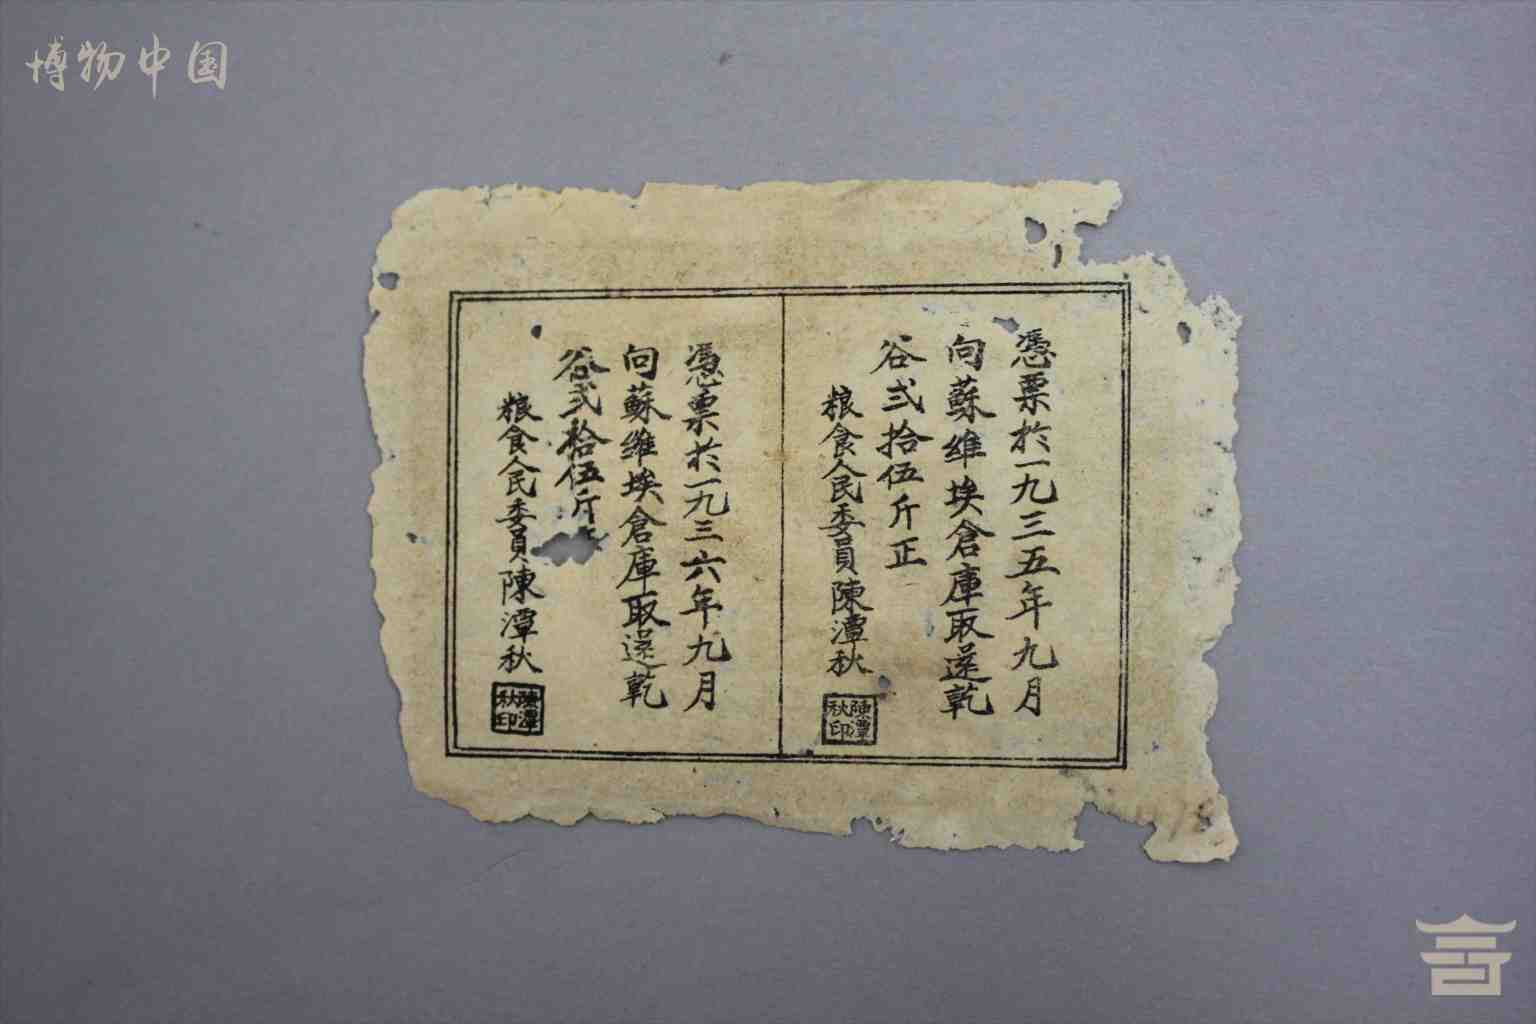 博物中国
憑票於一九三五年九月
向蘇维埃倉庫取還乾
谷弍拾伍斤正
粮食人民委員陳潭秋
陳潭
秋印
憑票於一九三六年九月
向蘇维埃倉庫取還乾
谷弍拾伍斤
粮食人民委員陳潭秋
陳潭
秋印